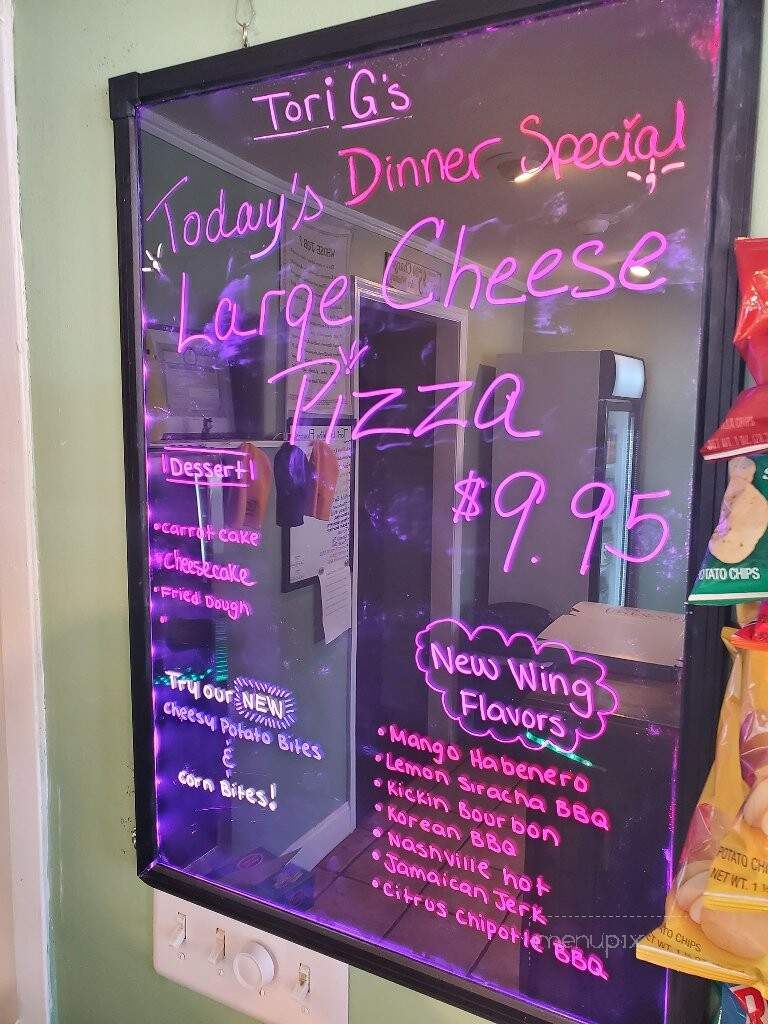 Tori G's
Today's Dinner Special
Large Cheese
Pizza
$9.95
Dessert
• Carrot Cake
Cheesecake
• Fried Dough
•
Try our NEW
Cheesy Potato Bites
&
Corn Bites!
New Wing
Flavors
• Mango Habenero
• Lemon Siracha BBQ
• Kickin Bourbon
• Korean BBQ
• Nashville hot
• Jamaican Jerk
• Citrus Chipotle BBQ
menupix
POTATO CHIPS
POTATO CHI
NET WT. 1
TO CHIPS